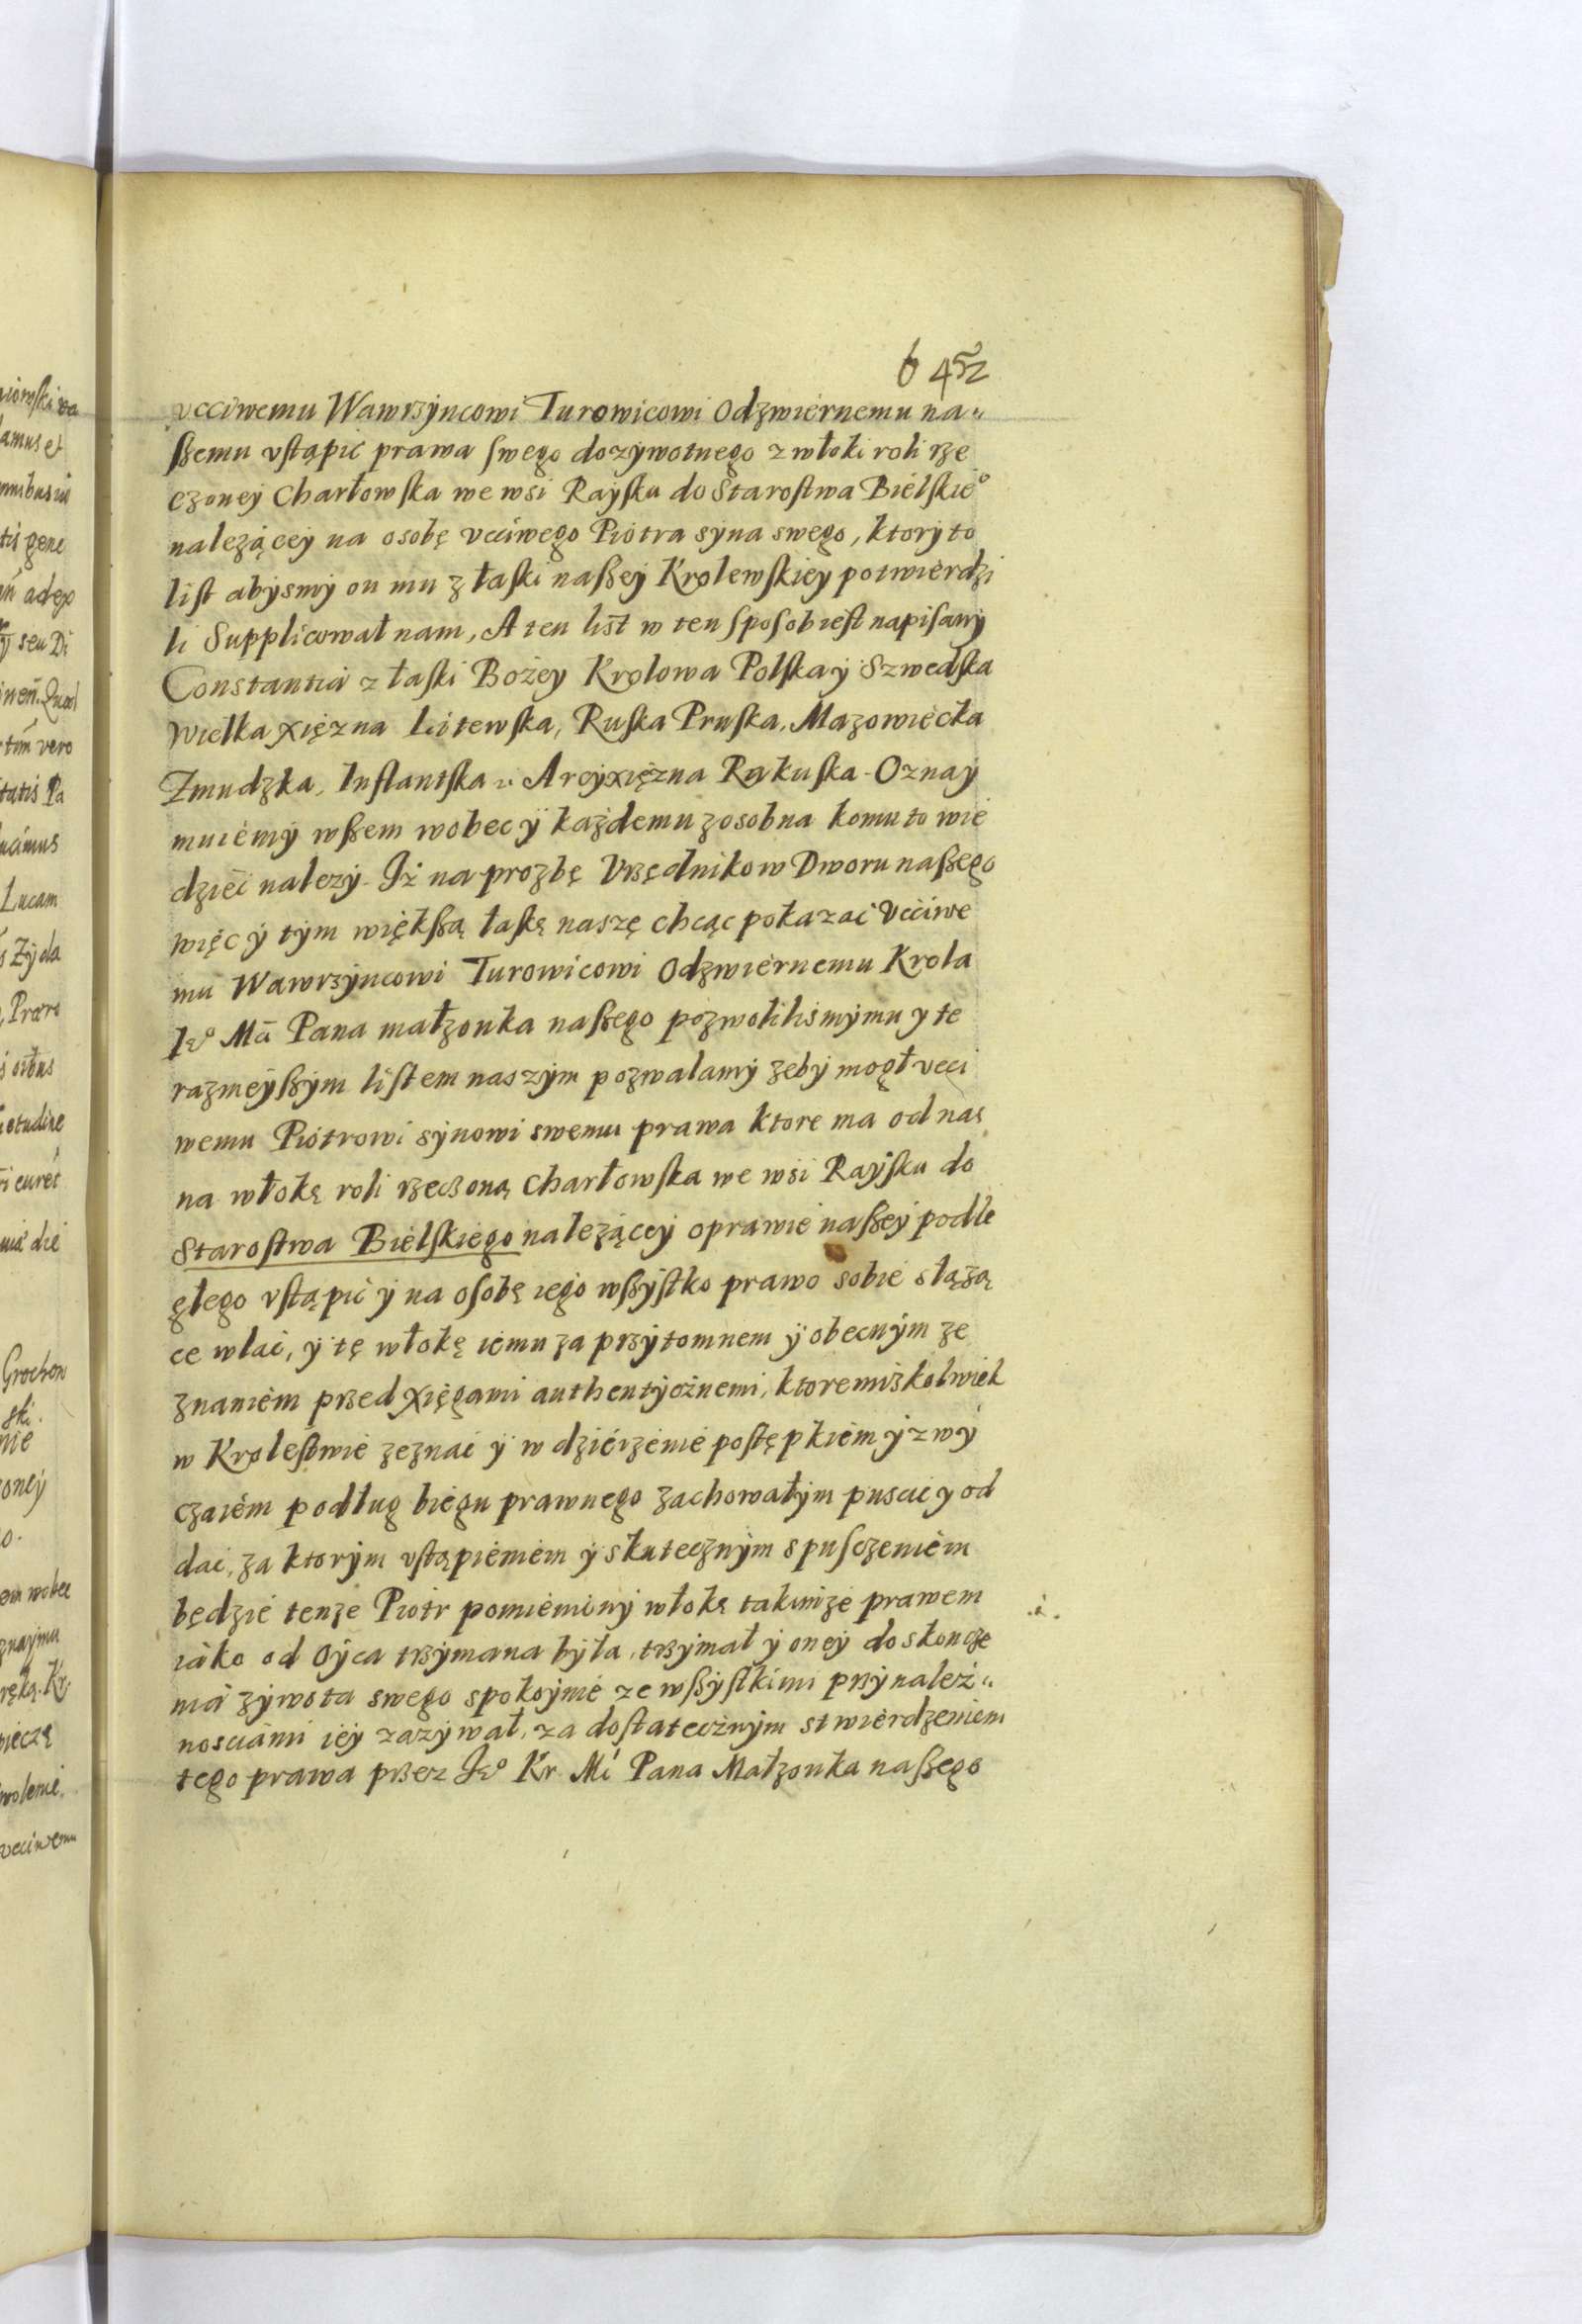 6 452
vcciwemu Wawrzyncowi Turowicowi Odzwiernemu na„
ßemu vstąpic prawa swego dozywotnego z włoki roli rze
czoney Charłowska we wsi Raysku do Starostwa Bielskieº
nalezącey na osobę vcciwego Piotra syna swego, ktory to
list abysmy on mu z łaski naßey Krolewskiey potwierdzi
li Supplicował nam, A ten list w ten sposob iest napisany
Constantia z łaski Bożey Krolowa Polska y Szwedska
Wielka xiężna Litewska, Ruska Pruska, Mazowiecka
Zmudzka, Inflantska „ Arcyxiężna Rakuska - Oznay
muiemy wßem wobec y każdemu zosobna komu to wie
dzieć nalezy - Iż na prozbę Vrzędnikow Dworu naßego
więc y tym więkßą łaskę naszę chcąc pokazać Vcciwe
mu Wawrzyncowi Turowicowi Odzwiernemu Krola
Ieº Mci Pana małzonka naßego pozwolilismy mu y te
raznieyßym listem naszym pozwalamy zeby mogł vcci
wemu Piotrowi synowi swemu prawa ktore ma od nas
na włokę roli rzeczoną Charłowska we wsi Raysku do
Starostwa Bielskiego nalezącey oprawie naßey podle
głego vstąpić y na osobę iego wßystko prawo sobie słązą
ce wlać, y tę włokę iemu za przytomnem y obecnym ze
znaniem przed xięgami authentycżnemi, ktoremiżkolwiek
w Krolestwie zeznać y w dzierżenie postępkiem y zwy
czaiem podług biegu prawnego zachowałym puscić y od
dać, za ktorym vstąpieniem y skutecznym spusczeniem
będzie tenże Piotr pomieniony włokę takimże prawem
iako od Oyca trzymana była, trzymał y oney do skoncze
nia zywota swego spokoynie ze wßystkimi przynależ„
nosciami iey zazywał, za dostatecżnym stwierdzeniem
tego prawa przez Ieº Kr Mci Pana Małzonka naßego